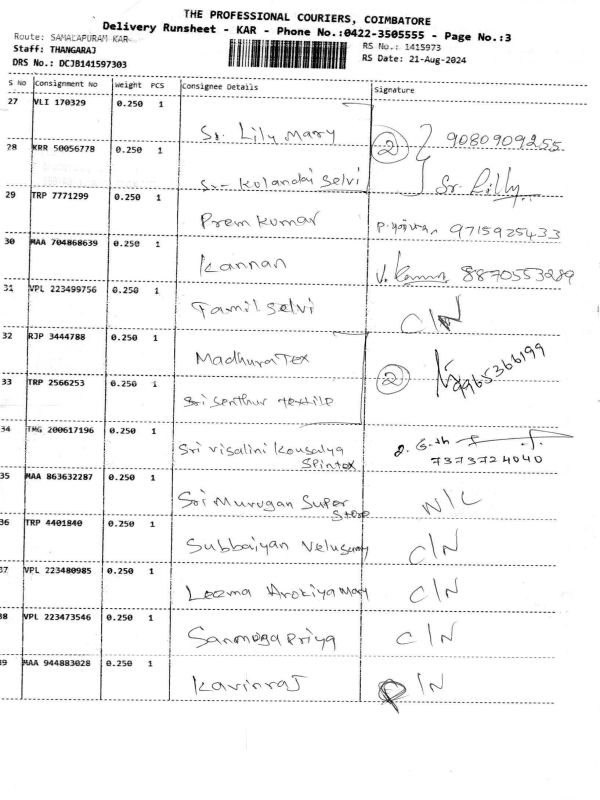 THE PROFESSIONAL COURIERS, COIMBATORE
Delivery Runsheet - KAR - Phone No.:0422-3505555 - Page No.:3
Route: SAMALAPURAM KAR
RS No.: 1415973
Staff: THANGARAJ
RS Date: 21-Aug-2024
DRS No.: DCJB141597303
S No Consignment No Weight PCS Consignee Details Signature
27 VLI 170329 0.250 1 Sr. Lily Mary 9080909255
28 KRR 50056778 0.250 1 Sr- Kulandai Selvi 2 Sr. Lilly
29 TRP 7771299 0.250 1 Prem Kumar 9715925433
30 MAA 704868639 0.250 1 Kannan 8870553289
31 VPL 223499756 0.250 1 Tamil Selvi C/N
32 RJP 3444788 0.250 1 Madhura Tex 9965366199
33 TRP 2566253 0.250 1 Sri Senthur textile 2
34 TMG 200617196 0.250 1 Sri Visalini Kousalya
Spintex 7373724040
35 MAA 863632287 0.250 1 Sri Murugan Super
Store N/C
36 TRP 4401840 0.250 1 Subbaiyan Velusamy C/N
37 VPL 223480985 0.250 1 Leema Arokiya Mary C/N
38 VPL 223473546 0.250 1 Sanmoga Priya C/N
39 MAA 944883028 0.250 1 Kavinraj C/N